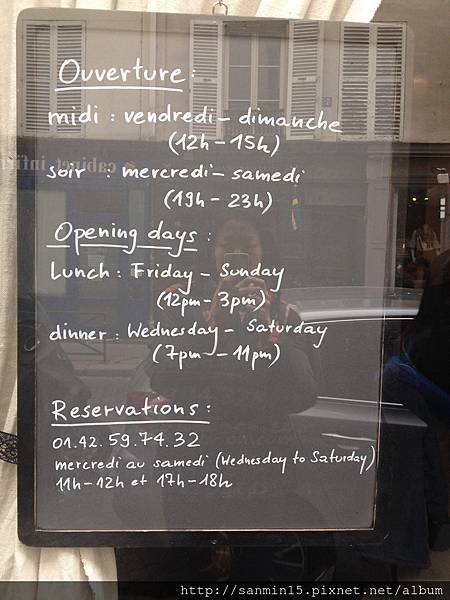 Ouverture :
midi : vendredi - dimanche
(12h - 15h)
soir : mercredi - samedi
(19h - 23h)
Opening days :
Lunch : Friday - Sunday
(12pm - 3pm)
dinner : Wednesday - Saturday
(7pm - 11pm)
Reservations :
01.42.59.74.32
mercredi au samedi (Wednesday to Saturday)
11h - 12h et 17h - 18h
http://sanmin15.pixnet.net/album